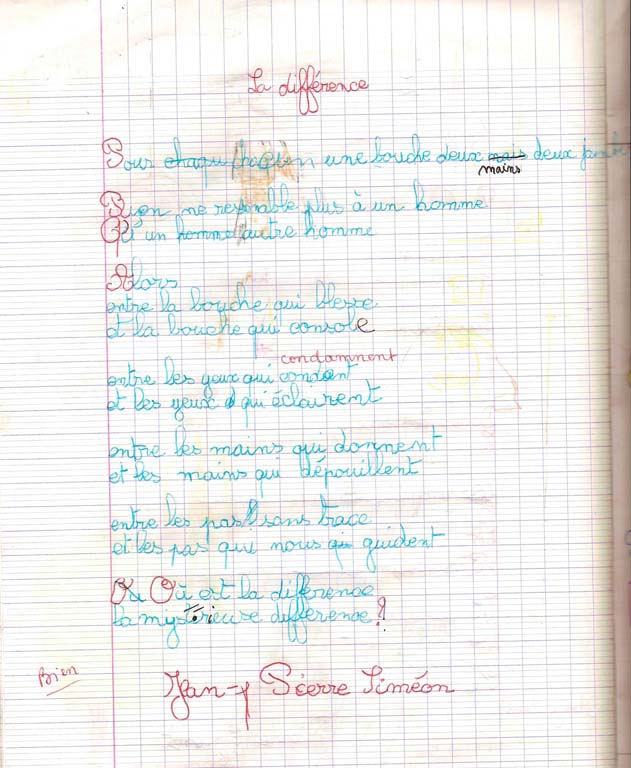 La différence
Pour chaqu chacun une bouche deux mais deux jamb
mains
Rien ne ressemble plus à un homme
Qu'un homme autre homme
Alors
entre la bouche qui blesse
et la bouche qui console
condamnent
entre les yeux qui condant
et les yeux qui éclairent
entre les mains qui donnent
et les mains qui dépouillent
entre les pas sans trace
et les pas qui nous guident
Ou Où est la différence
la mystérieuse différence ?
Bien
Jean-Pierre Siméon